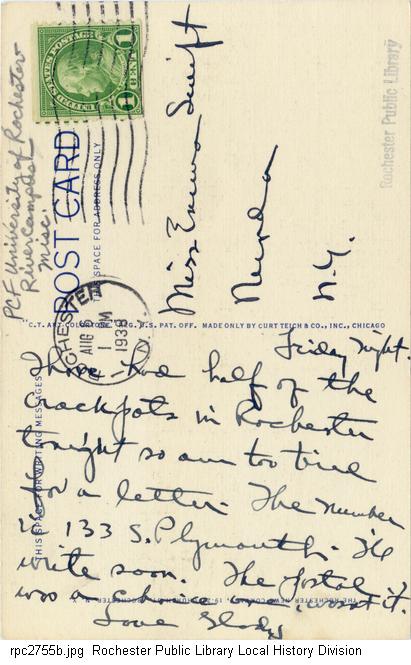 UNITED STATES POSTAGE
1 CENT 1
PCF University of Rochester
River Campus
Misc.
POST CARD
THIS SPACE FOR ADDRESS ONLY
Rochester Public Library
Miss Emma Swift
Nunda
N.Y.
ROCHESTER N.Y.
AUG 5
1 PM
1938
"C.T. ART-COLORTONE" REG. U.S. PAT. OFF. MADE ONLY BY CURT TEICH & CO., INC., CHICAGO
THIS SPACE FOR WRITING MESSAGES
Friday Night.
I have had half of the
crackpots in Rochester
tonight so am too tired
for a letter. The number
is 133 S. Plymouth. I'll
write soon. The postal
was a
it.
Love Gladys
THE ROCHESTER NEWS COMPANY, 19-21 CHURCH ST., ROCHESTER, N. Y.
rpc2755b.jpg Rochester Public Library Local History Division